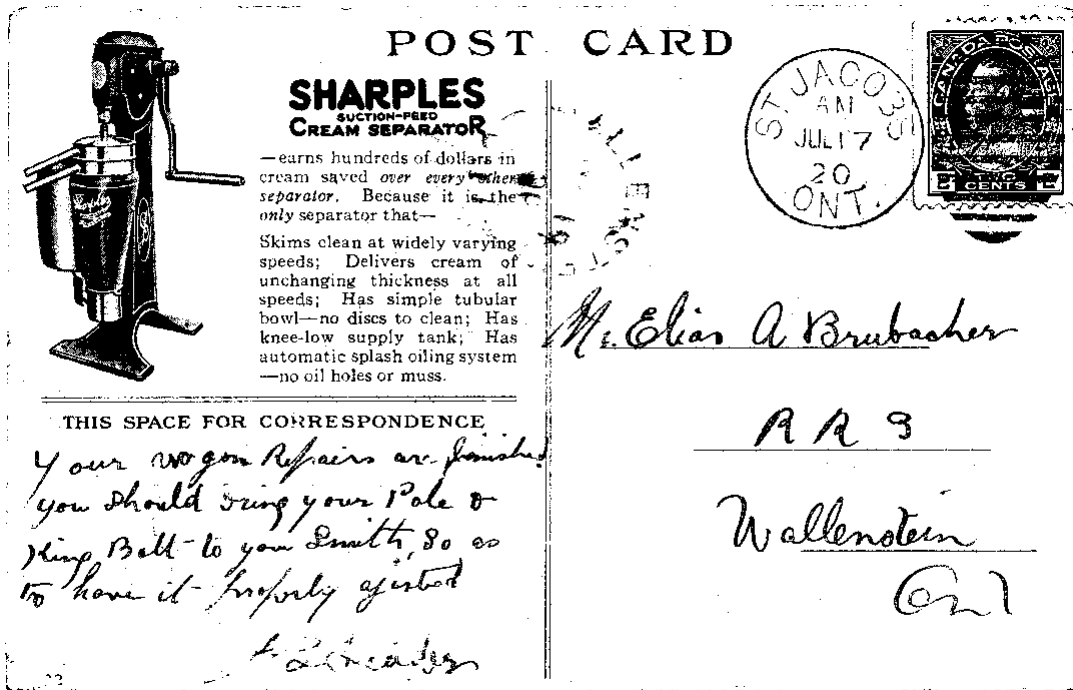 POST CARD
SHARPLES
SUCTION-FEED
CREAM SEPARATOR
—earns hundreds of dollars in
cream saved over every other
separator. Because it is the
only separator that—
Skims clean at widely varying
speeds; Delivers cream of
unchanging thickness at all
speeds; Has simple tubular
bowl—no discs to clean; Has
knee-low supply tank; Has
automatic splash oiling system
—no oil holes or muss.
THIS SPACE FOR CORRESPONDENCE
Your wagon Repairs are finished
you should bring your Pole &
King Bolt to your Smith, So as
to have it properly ajusted
ST. JACOBS
AM
JUL 17
20
ONT.
CANADA POSTAGE
CENTS
Mr. Elias A Brubacher
R R 3
Wallenstein
Ont